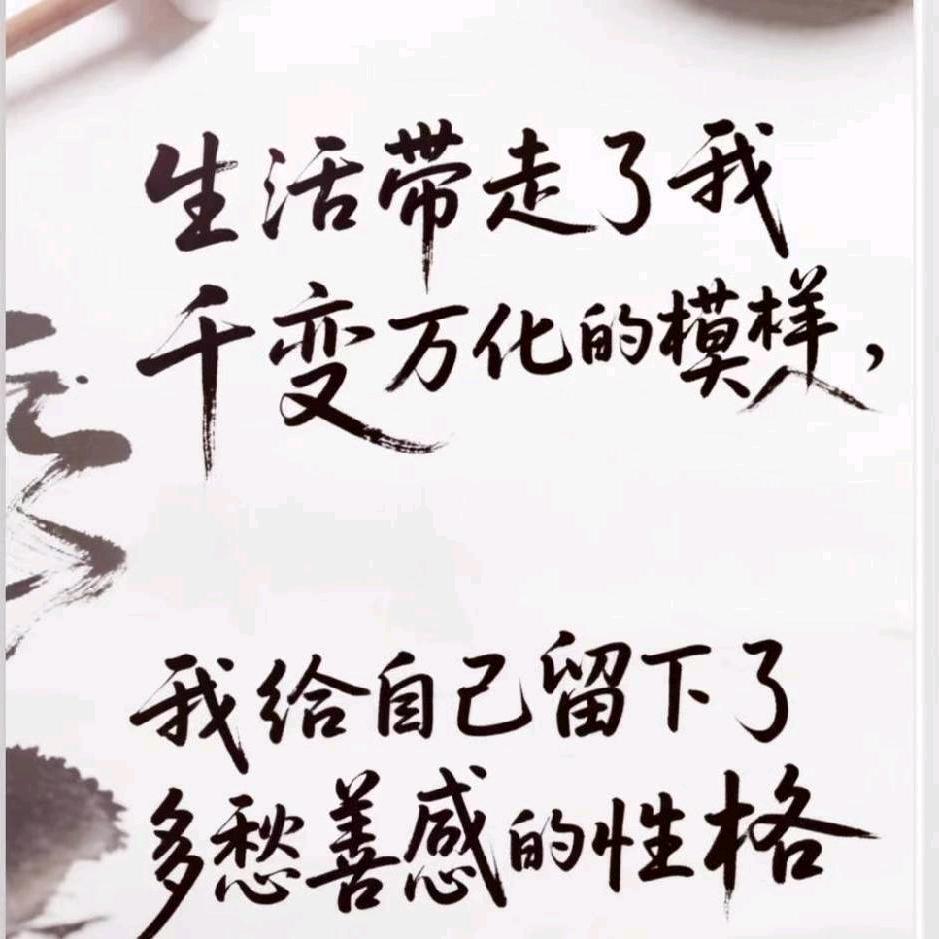 生活带走了我
千变万化的模样，
我给自己留下了
多愁善感的性格